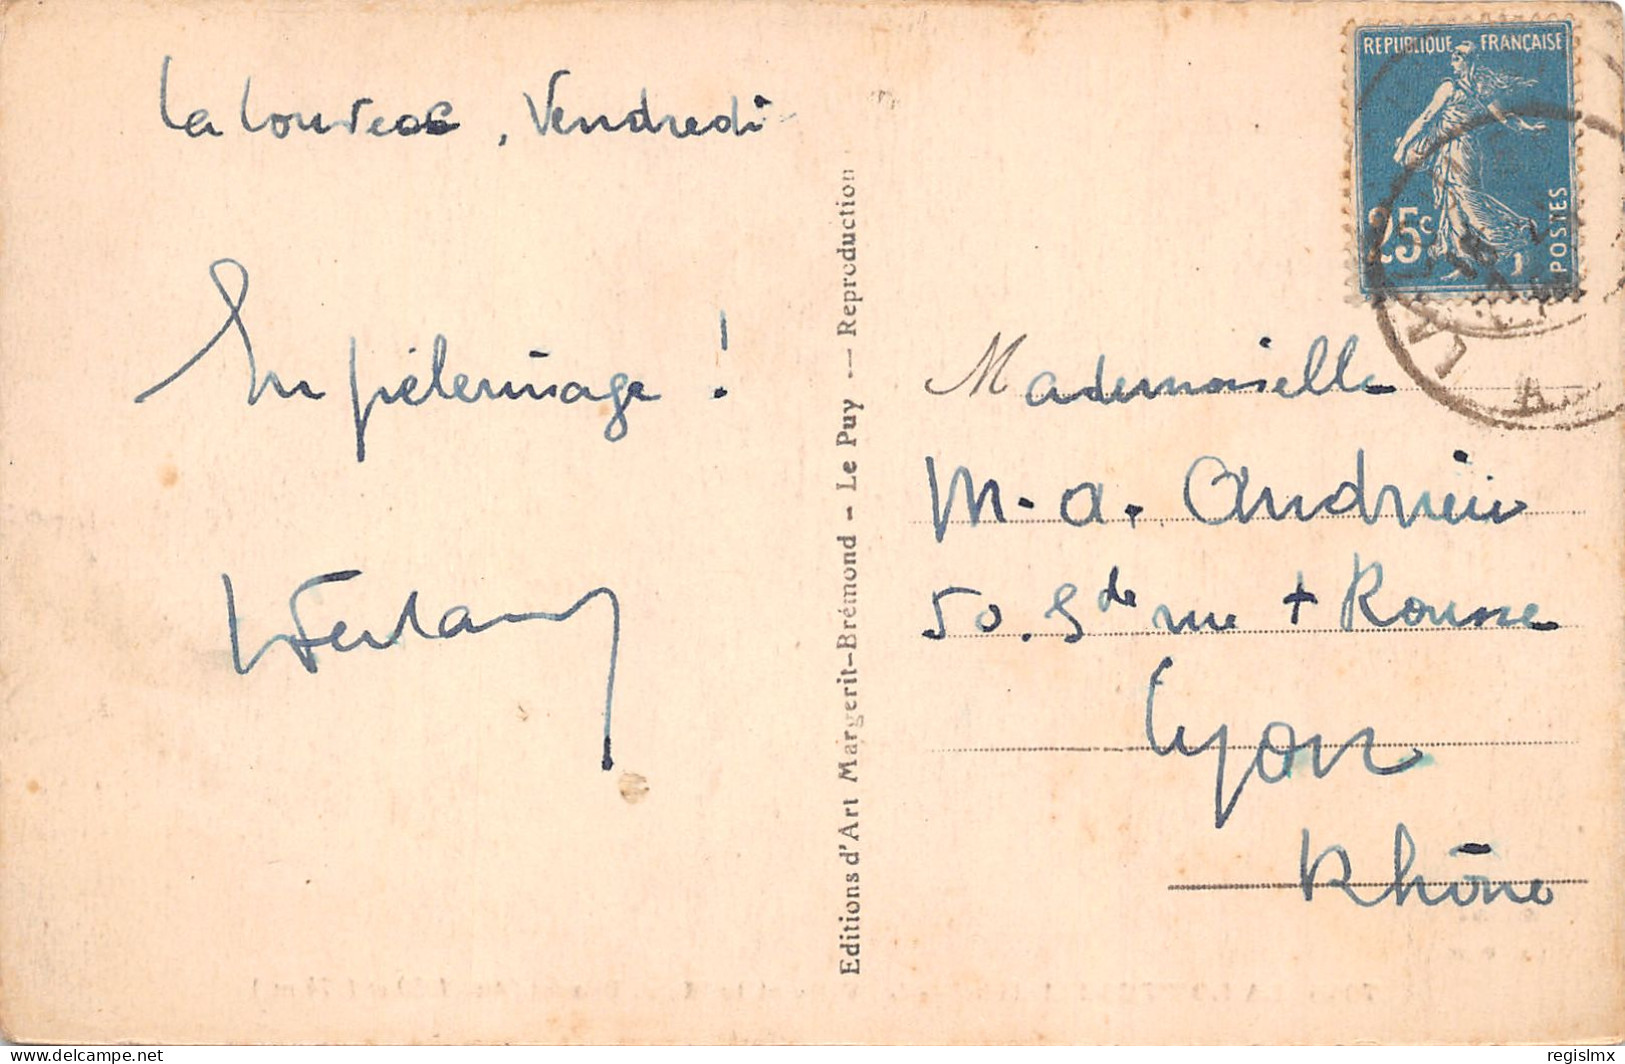 La Louvesc, Vendredi
En pélerinage !
REPUBLIQUE FRANÇAISE
25c
POSTES
Mademoiselle
M. A. Andrieu
50. Gde rue + Rousse
Lyon
Rhône
Editions d'Art Margerit-Brémond - Le Puy — Reproduction
regislmx
delcampe.net